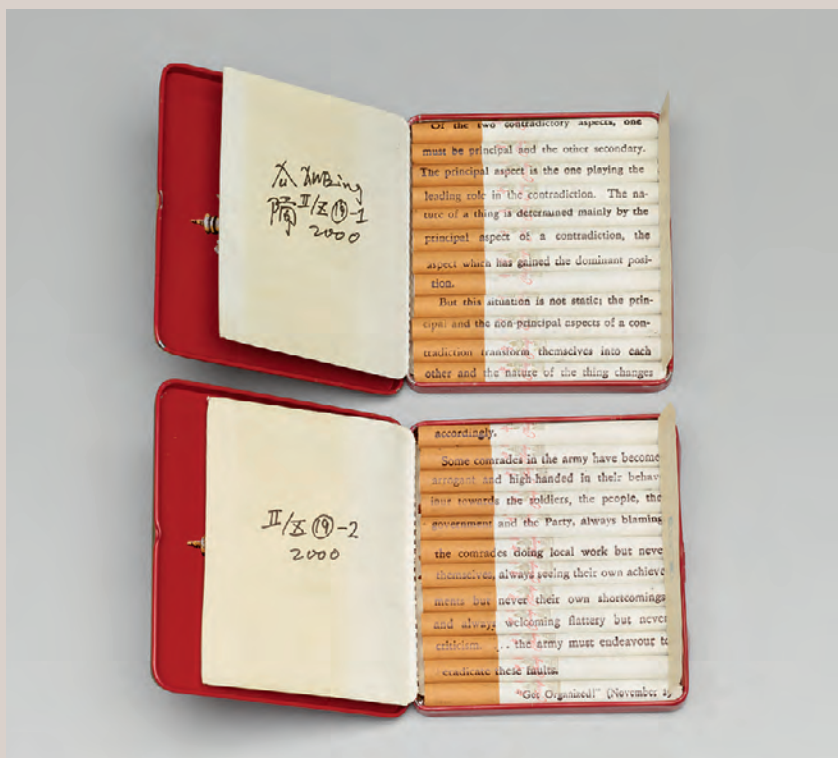 XuBing
II/Z ⑲-1
2000
Of the two contradictory aspects, one
must be principal and the other secondary.
The principal aspect is the one playing the
leading role in the contradiction. The na-
ture of a thing is determined mainly by the
principal aspect of a contradiction, the
aspect which has gained the dominant posi-
tion.
But this situation is not static; the prin-
cipal and the non-principal aspects of a con-
tradiction transform themselves into each
other and the nature of the thing changes
II/Z ⑲-2
2000
accordingly.
Some comrades in the army have become
arrogant and high-handed in their behav-
iour towards the soldiers, the people, the
government and the Party, always blaming
the comrades doing local work but neve
themselves, always seeing their own achieve
ments but never their own shortcomings
and always welcoming flattery but never
criticism. ... the army must endeavour to
eradicate these faults.
"Get Organized!" (November 29